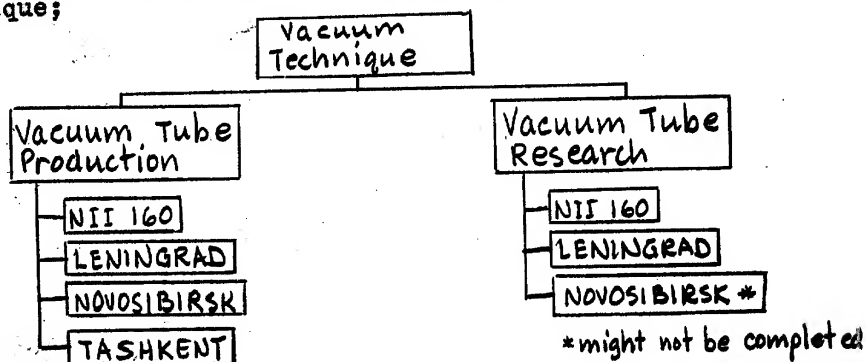 que;
Vacuum
Technique
Vacuum Tube
Production
NII 160
LENINGRAD
NOVOSIBIRSK
TASHKENT
Vacuum Tube
Research
NII 160
LENINGRAD
NOVOSIBIRSK *
*might not be completed